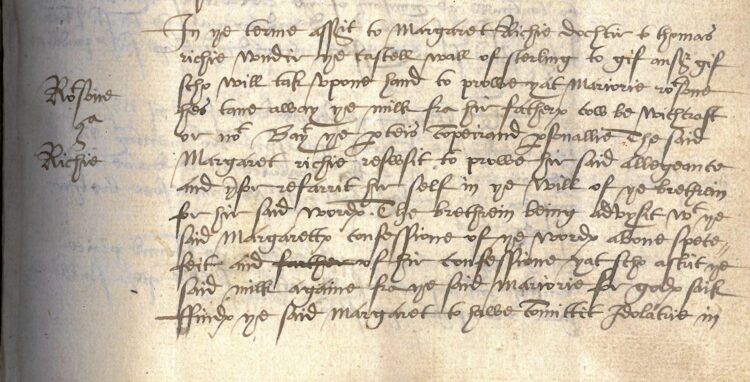 In ye terme assit to Margaret Richie dochtir to thomas
richie wndir ye castell wall of sterling to gif ansr gif
scho will tak vpone hand to prowe yat Marjorie rosone
Rosone
hes tane away ye milk fra hir fatheris cow be witchraft
or not Bayt ye perteis comperand personallie The said
ga
Richie
Margaret richie refusit to prowe hir said allegeance
and yrfor referrit hir self in ye will of ye brethrein
for hir said wordis. The brethrein being advysit wt ye
said Margarettis confessione of ye wordis abone spece-
feit and farther of hir confessione yat scho askit ye
said milk againe fra ye said Marjorie for godis saik
ffindis ye said Margaret to hawe comittit Idolatrie in